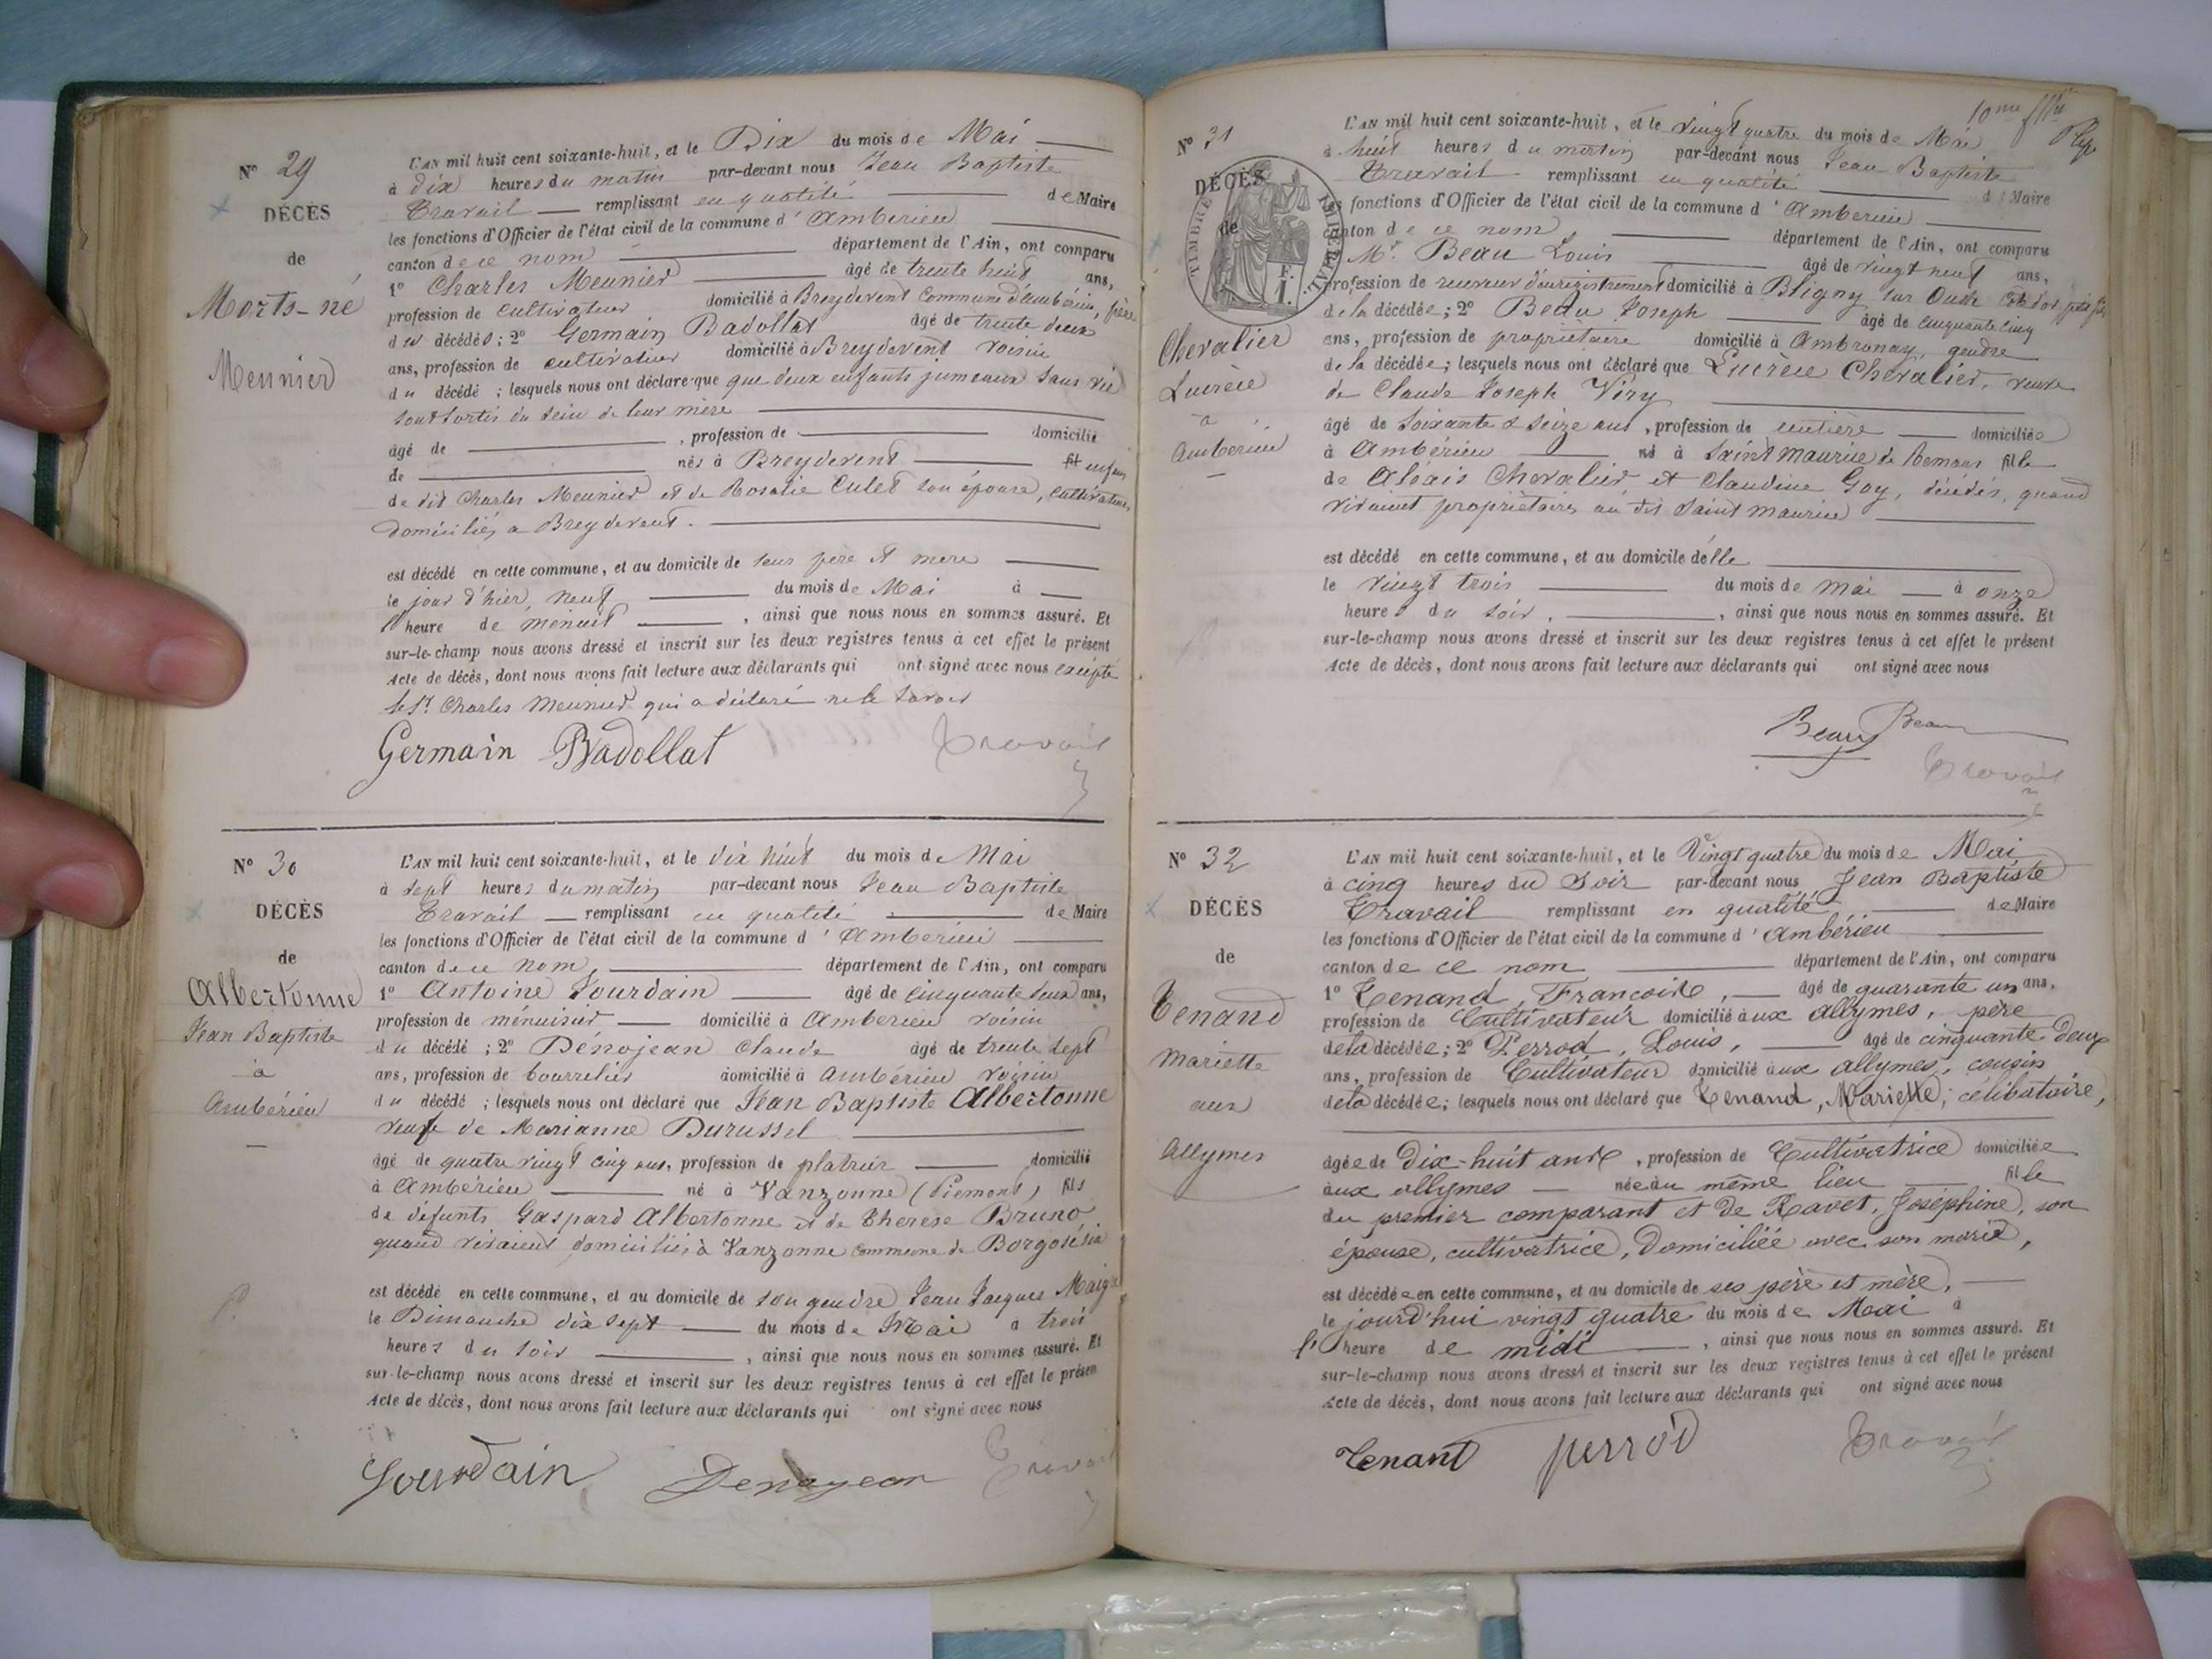 N° 29
DÉCÈS
de
Morts-né
Meunier
L'AN mil huit cent soixante-huit, et le Dix du mois de Mai
à dix heures du matin par-devant nous Jean Baptiste
Travail remplissant en qualité de Maire
les fonctions d'Officier de l'état civil de la commune d'Ambérieu
canton de ce nom département de l'Ain, ont comparu
1° Charles Meunier âgé de trente huit ans,
profession de cultivateur domicilié à Breydevent commune d'ambérieu, père
du décédés ; 2° Germain Badollat âgé de trente deux
ans, profession de cultivateur domicilié à Breydevent voisin
du décédé ; lesquels nous ont déclaré que que deux enfants jumeaux sans vie
sont sortis du sein de leur mère
âgé de , profession de domicilié
de nés à Breydevent fil enfans
de dit Charles Meunier et de Rosalie Culet son épouse, cultivateurs
domiciliés à Breydevent.
est décédé en cette commune, et au domicile de leur père et mère
le jour d'hier, neuf du mois de Mai à
heure de menuit , ainsi que nous nous en sommes assuré. Et
sur-le-champ nous avons dressé et inscrit sur les deux registres tenus à cet effet le présent
Acte de décès, dont nous avons fait lecture aux déclarants qui ont signé avec nous excepté
le Sr Charles Meunier qui a déclaré ne le savoir
Germain Badollat Travail
N° 30
DÉCÈS
de
Albertonne
Jean Baptiste
à
Ambérieu
L'AN mil huit cent soixante-huit, et le dix huit du mois de Mai
à sept heures du matin par-devant nous Jean Baptiste
Travail remplissant en qualité de Maire
les fonctions d'Officier de l'état civil de la commune d'Ambérieu
canton de ce nom, département de l'Ain, ont comparu
1° Antoine Jourdain âgé de cinquante deux ans,
profession de ménuisier domicilié à Amberieu voisin
du décédé ; 2° Dénojean Claude âgé de trente sept
ans, profession de bourrelier domicilié à Ambérieu voisin
du décédé ; lesquels nous ont déclaré que Jean Baptiste Albertonne
veuf de Marianne Durussel
âgé de quatre vingt cinq ans, profession de platrier domicilié
à Ambérieu né à Vanzonne (Piemont) fils
de défunts Gaspard Albertonne et de Therese Bruno
quand vivaient domiciliés à Vanzonne commune de Borgosésia
est décédé en cette commune, et au domicile de son gendre Jean Jacques
le Dimanche dix sept du mois de Mai à trois
heures du soir , ainsi que nous nous en sommes assuré. Et
sur-le-champ nous avons dressé et inscrit sur les deux registres tenus à cet effet le présen
Acte de décès, dont nous avons fait lecture aux déclarants qui ont signé avec nous
Jourdain Denojean Travail
10me
N° 31
DÉCÈS
de
TIMBRE IMPÉRIAL
Chevalier
Lucrèce
à
Ambérieu
L'AN mil huit cent soixante-huit, et le vingt quatre du mois de Mai
à huit heures du matin par-devant nous Jean Baptiste
Travail remplissant en qualité de Maire
les fonctions d'Officier de l'état civil de la commune d'Ambérieu
canton de ce nom département de l'Ain, ont comparu
Mr. Beau Louis âgé de vingt neuf ans,
profession de receveur d'enregistrement domicilié à Bligny sur Ouche Côte d'or, petit fils
de la décédée ; 2° Beau Joseph âgé de cinquante cinq
ans, profession de propriétaire domicilié à Ambronay, gendre
de la décédée ; lesquels nous ont déclaré que Lucrèce Chevalier, veuve
de Claude Joseph Viry
âgé de soixante & seize ans , profession de rentière domiciliée
à Ambérieu né à Saint Maurice de Remans fille
de Chevalier et Claudine Goy, décédés, quand
vivaient propriétaires au dit Saint Maurice
est décédé en cette commune, et au domicile d'elle
le vingt trois du mois de mai à onze
heures du soir , ainsi que nous nous en sommes assuré. Et
sur-le-champ nous avons dressé et inscrit sur les deux registres tenus à cet effet le présent
Acte de décès, dont nous avons fait lecture aux déclarants qui ont signé avec nous
Beau Beau
Travail
N° 32
DÉCÈS
de
Tenand
Mariette
aux
Allymes
L'AN mil huit cent soixante-huit, et le Vingt quatre du mois de Mai
à cinq heures du Soir par-devant nous Jean Baptiste
Travail remplissant en qualité de Maire
les fonctions d'Officier de l'état civil de la commune d'Ambérieu
canton de ce nom département de l'Ain, ont comparu
1° Tenand, François, âgé de quarante un ans,
profession de Cultivateur domicilié aux allymes, père
de la décédée ; 2° Perrod, Louis, âgé de cinquante deux
ans, profession de Cultivateur domicilié aux allymes, cousin
de la décédée ; lesquels nous ont déclaré que Tenand, Mariette, célibataire,
âgée de Dix-huit ans , profession de Cultivatrice domiciliée
aux allymes née au même lieu fille
du premier comparant et de Ravet, Joséphine, son
épouse, cultivatrice, domiciliée avec son mari,
est décédée en cette commune, et au domicile de ses père et mère,
le jourd'hui vingt quatre du mois de Mai à
l' heure de midi , ainsi que nous nous en sommes assuré. Et
sur-le-champ nous avons dressé et inscrit sur les deux registres tenus à cet effet le présent
Acte de décès, dont nous avons fait lecture aux déclarants qui ont signé avec nous
Tenant perrod Travail